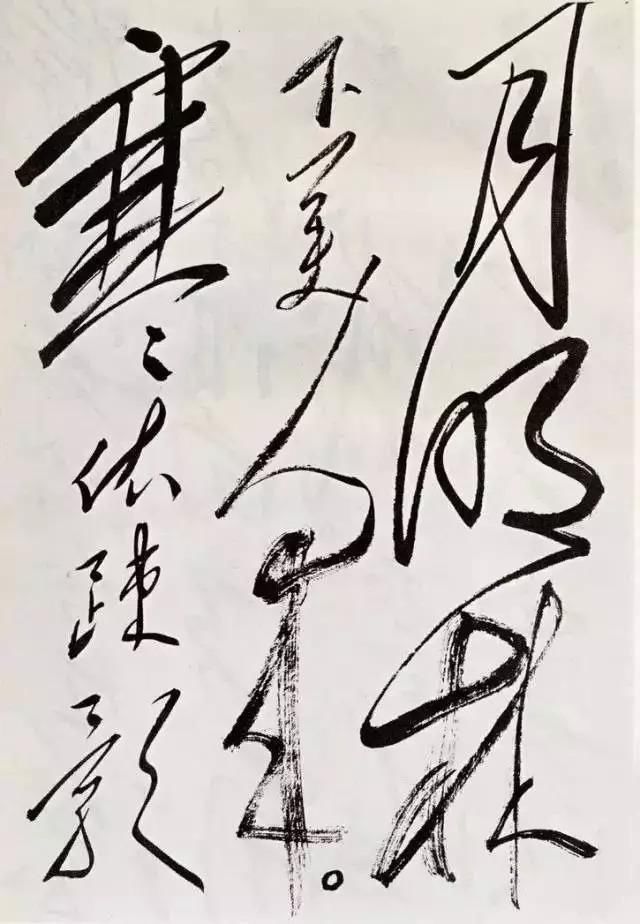 月明林
下美人来。
寒依疎影